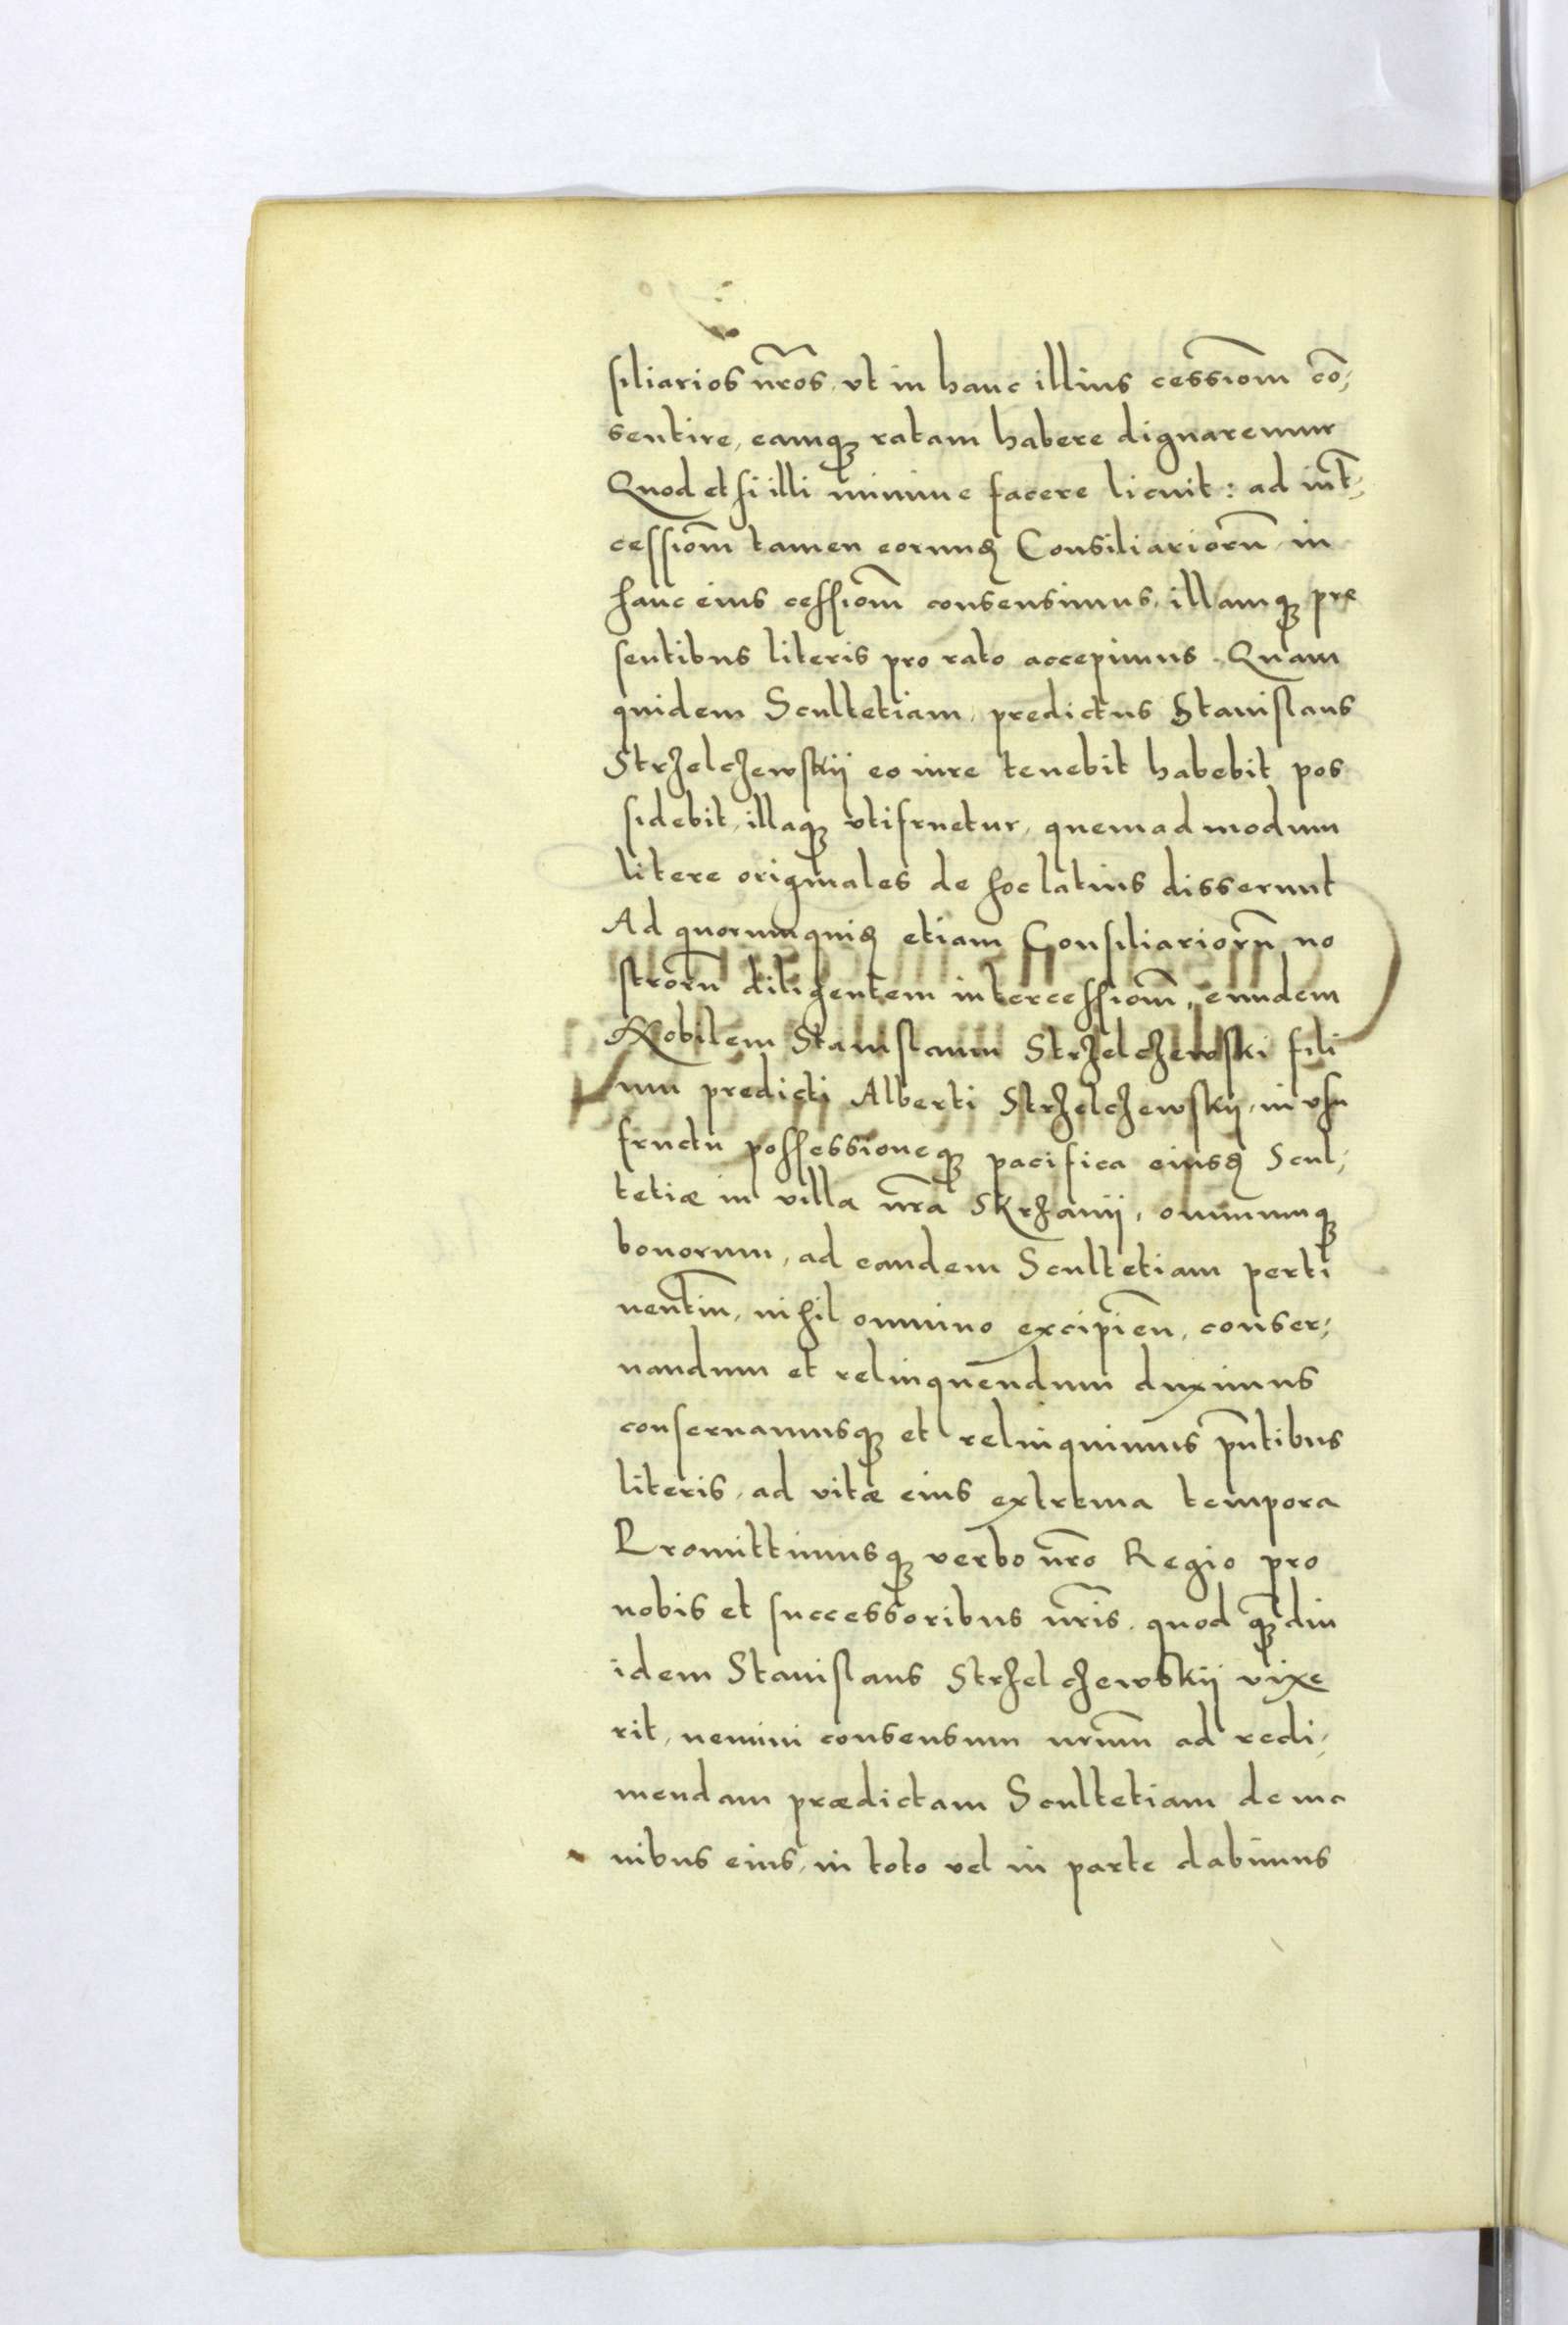 siliarios nr̃os, vt in hanc illius cessiom̃ cõ;
sentire, eamqꝫ ratam habere dignaremur
Quod etsi illi minime facere licuit: ad int̃;
cessiom̃ tamen eorunꝺ Consiliariorũ in
hanc eius cessiom̃ consensimus, illamqꝫ prę
sentibus literis pro rato accepimus. Quam
quidem Scultetiam, predictus Stanislaus
Strzelczewskij eo iure tenebit habebit pos
sidebit, illaqꝫ vtifruetur, quemadmodum
litere originales de hoc latius disserunt
Ad quorumquiꝺ etiam Consiliariorũ no
strorũ diligentem intercessiom̃, eundem
Nobilem Stanislaum Strzelczewski fili
um predicti Alberti Strzelczewskij, in vsu
fructu possessioneqꝫ pacifica eiusꝺ Scul;
tetiæ in villa nr̃a Skrzanij, omniumqꝫ
bonorum, ad eandem Scultetiam perti
nentiũ, nihil omnino excipieñ, conser;
uandum et relinquendum duximus
conseruamusqꝫ et relinquimus pñtibus
literis, ad vitæ eius extrema tempora
Promittimusqꝫ verbo nr̃o Regio pro
nobis et successoribus nr̃is. quod qꝫ̃diu
idem Stanislaus Strzelczewskij vixe
rit, nemini consensum nrũm ad redi;
mendam prædictam Scultetiam de ma
nibus eius, in toto vel in parte dabimus